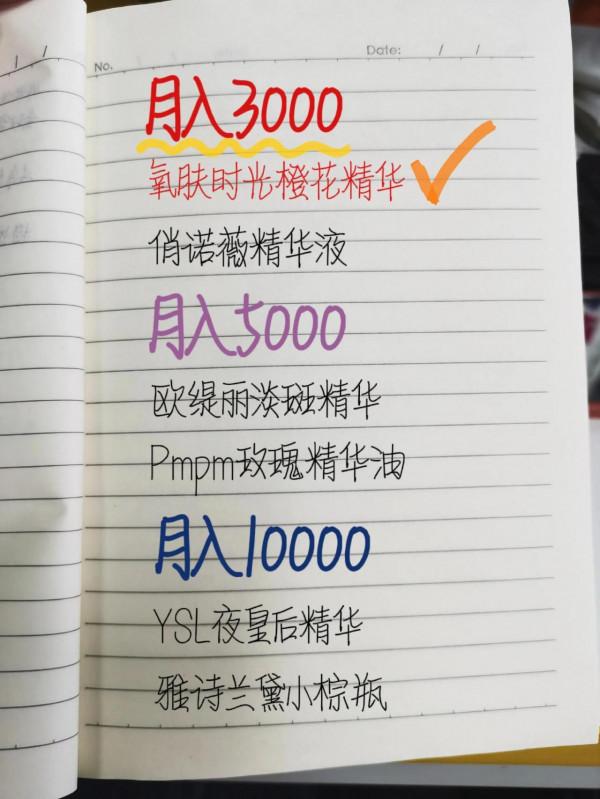 No.
Date: / /
月入3000
氧肤时光橙花精华
俏诺薇精华液
月入5000
欧缇丽淡斑精华
Pmpm玫瑰精华油
月入10000
YSL夜皇后精华
雅诗兰黛小棕瓶